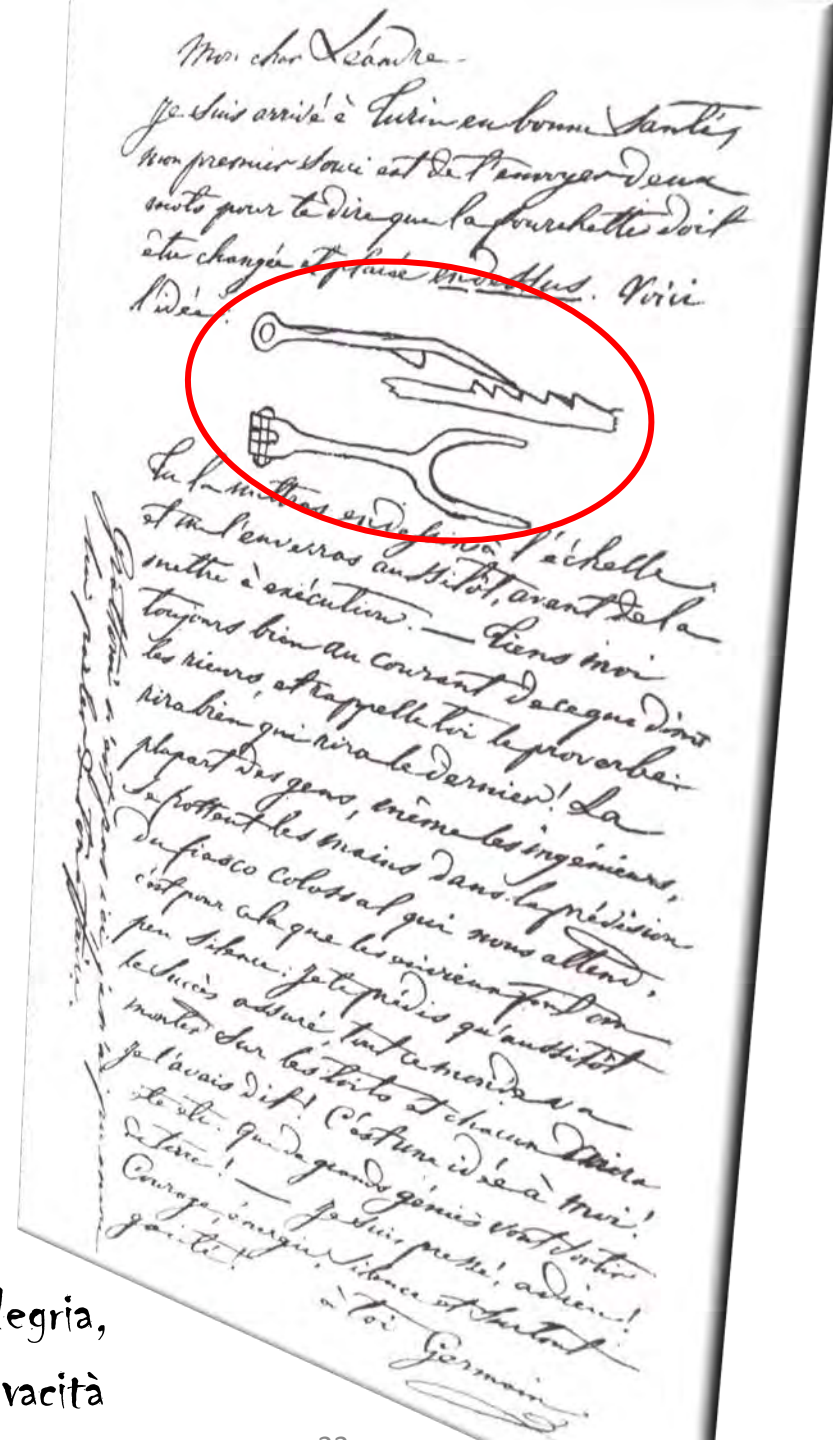 Mon cher Léandre.
Je suis arrivé à Turin en bonne santé,
mon premier souci est de t'envoyer deux
mots pour te dire que la fourchette doit
être changée et placée en dessus. Voici
l'idée:
Tu la mettras en dessin à l'échelle
et me l'enverras aussitôt, avant de la
mettre à exécution. — Tiens moi
toujours bien au courant de ce que diront
les rieurs, et rappelle toi le proverbe:
rira bien qui rira le dernier! La
plupart des gens, même les ingénieurs,
se frottent les mains dans la prédision
du fiasco colossal qui nous attend,
c'est pour cela que les envieux font un
peu silence: je te prédis qu'aussitôt
le succès assuré, tout ce monde va
monter sur les toits et chacun dira
je l'avais dit! C'est une idée à moi!
etc etc. que de grands génies vont sortir
de terre! — Je suis pressé, adieu!
Courage, énergie, silence et surtout
gaieté!
à toi Germain
legria,
vacità